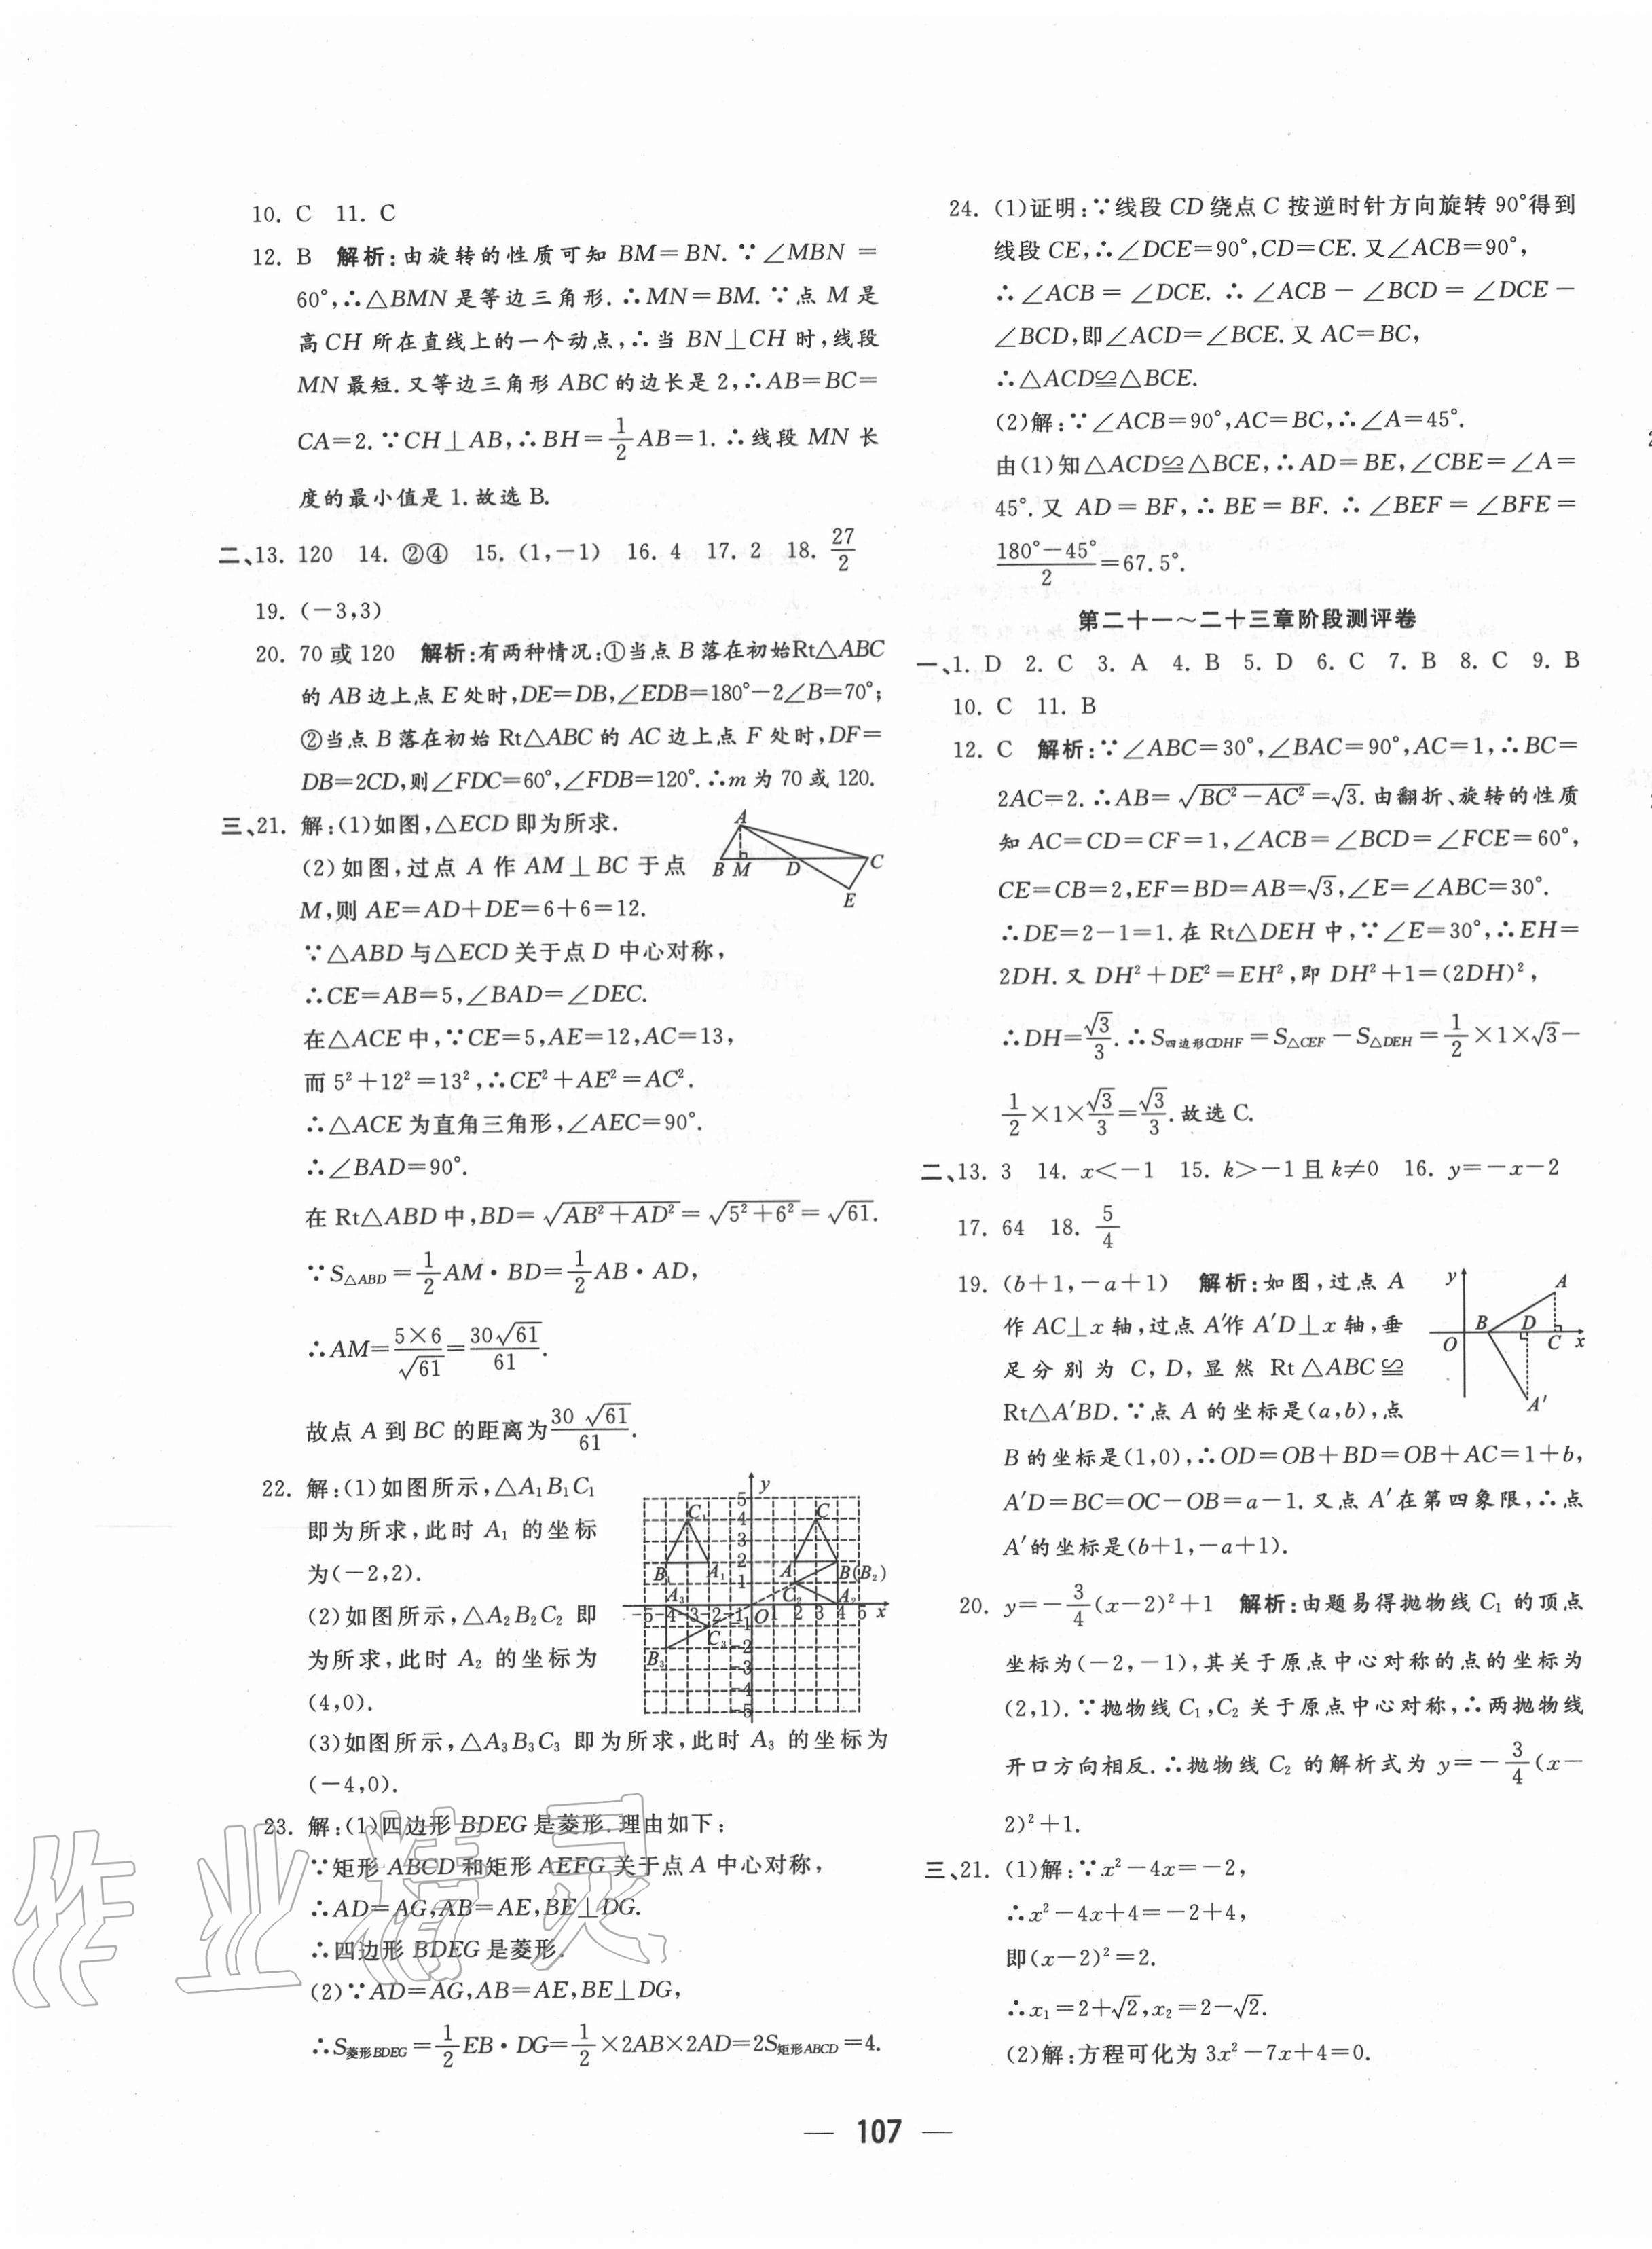 10. C 11. C
12. B 解析:由旋转的性质可知 BM=BN.∵∠MBN=
60°,∴△BMN是等边三角形.∴MN=BM.∵点M是
高CH所在直线上的一个动点,∴当BN⊥CH时,线段
MN最短.又等边三角形ABC的边长是2,∴AB=BC=
CA=2.∵CH⊥AB,∴BH=1/2AB=1.∴线段MN长
度的最小值是1.故选B.
二、13. 120 14. ②④ 15. (1,-1) 16. 4 17. 2 18. 27/2
19. (-3,3)
20. 70或120 解析:有两种情况:①当点B落在初始Rt△ABC
的AB边上点E处时,DE=DB,∠EDB=180°-2∠B=70°;
②当点B落在初始Rt△ABC的AC边上点F处时,DF=
DB=2CD,则∠FDC=60°,∠FDB=120°.∴m为70或120.
三、21. 解:(1)如图,△ECD即为所求.
(2)如图,过点A作AM⊥BC于点
M,则AE=AD+DE=6+6=12.
A
B M D C
E
∵△ABD与△ECD关于点D中心对称,
∴CE=AB=5,∠BAD=∠DEC.
在△ACE中,∵CE=5,AE=12,AC=13,
而5²+12²=13²,∴CE²+AE²=AC².
∴△ACE为直角三角形,∠AEC=90°.
∴∠BAD=90°.
在Rt△ABD中,BD=√(AB²+AD²)=√(5²+6²)=√61.
∵S△ABD=1/2AM·BD=1/2AB·AD,
∴AM=5×6/√61=30√61/61.
故点A到BC的距离为30√61/61.
22. 解:(1)如图所示,△A₁B₁C₁
即为所求,此时A₁的坐标
为(-2,2).
(2)如图所示,△A₂B₂C₂即
为所求,此时A₂的坐标为
(4,0).
y
5
C₁ 4 C
3
2
B₁ A₁ 1 A B(B₂)
A₃ C₂ A₂
-5 -4 -3 -2 -1 O 1 2 3 4 5 x
-1
C₃ -2
B₃ -3
-4
-5
(3)如图所示,△A₃B₃C₃即为所求,此时A₃的坐标为
(-4,0).
23. 解:(1)四边形BDEG是菱形.理由如下:
∵矩形ABCD和矩形AEFG关于点A中心对称,
∴AD=AG,AB=AE,BE⊥DG.
∴四边形BDEG是菱形.
(2)∵AD=AG,AB=AE,BE⊥DG,
∴S菱形BDEG=1/2EB·DG=1/2×2AB×2AD=2S矩形ABCD=4.
作业精灵
24. (1)证明:∵线段CD绕点C按逆时针方向旋转90°得到
线段CE,∴∠DCE=90°,CD=CE.又∠ACB=90°,
∴∠ACB=∠DCE.∴∠ACB-∠BCD=∠DCE-
∠BCD,即∠ACD=∠BCE.又AC=BC,
∴△ACD≌△BCE.
(2)解:∵∠ACB=90°,AC=BC,∴∠A=45°.
由(1)知△ACD≌△BCE,∴AD=BE,∠CBE=∠A=
45°.又AD=BF,∴BE=BF.∴∠BEF=∠BFE=
(180°-45°)/2=67.5°.
第二十一~二十三章阶段测评卷
一、1. D 2. C 3. A 4. B 5. D 6. C 7. B 8. C 9. B
10. C 11. B
12. C 解析:∵∠ABC=30°,∠BAC=90°,AC=1,∴BC=
2AC=2.∴AB=√(BC²-AC²)=√3.由翻折、旋转的性质
知AC=CD=CF=1,∠ACB=∠BCD=∠FCE=60°,
CE=CB=2,EF=BD=AB=√3,∠E=∠ABC=30°.
∴DE=2-1=1.在Rt△DEH中,∵∠E=30°,∴EH=
2DH.又DH²+DE²=EH²,即DH²+1=(2DH)²,
∴DH=√3/3.∴S四边形CDHF=S△CEF-S△DEH=1/2×1×√3-
1/2×1×√3/3=√3/3.故选C.
二、13. 3 14. x<-1 15. k>-1且k≠0 16. y=-x-2
17. 64 18. 5/4
19. (b+1,-a+1) 解析:如图,过点A
作AC⊥x轴,过点A′作A′D⊥x轴,垂
足分别为C,D,显然Rt△ABC≌
Rt△A′BD.∵点A的坐标是(a,b),点
y A
B D
O C x
A′
B的坐标是(1,0),∴OD=OB+BD=OB+AC=1+b,
A′D=BC=OC-OB=a-1.又点A′在第四象限,∴点
A′的坐标是(b+1,-a+1).
20. y=-3/4(x-2)²+1 解析:由题易得抛物线C₁的顶点
坐标为(-2,-1),其关于原点中心对称的点的坐标为
(2,1).∵抛物线C₁,C₂关于原点中心对称,∴两抛物线
开口方向相反.∴抛物线C₂的解析式为y=-3/4(x-
2)²+1.
三、21. (1)解:∵x²-4x=-2,
∴x²-4x+4=-2+4,
即(x-2)²=2.
∴x₁=2+√2,x₂=2-√2.
(2)解:方程可化为3x²-7x+4=0.
— 107 —